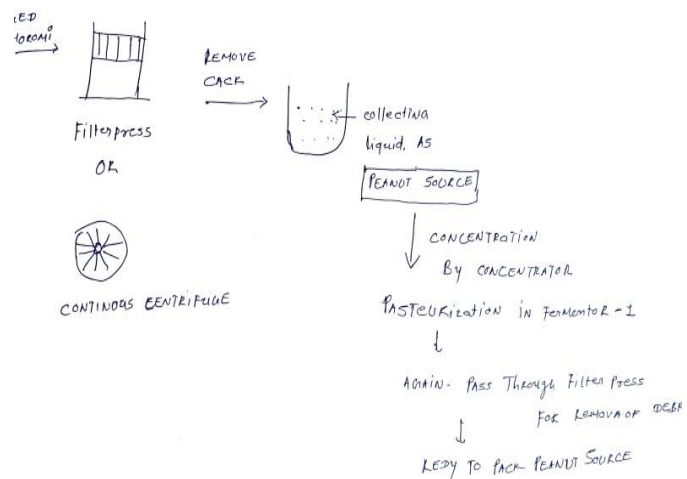 ED
OROMI
Filterpress
OR
CONTINOUS CENTRIFUGE
REMOVE
CACK
collectina
liquid. AS
PEANUT SOURCE
CONCENTRATION
By CONCENTRATOR
PASTEURIZATION IN FERMENTOR-1
AGAIN- PASS THROUGH FILTER PRESS
FOR REMOVA OF DEBR
REDY TO PACK PEANUT SOURCE